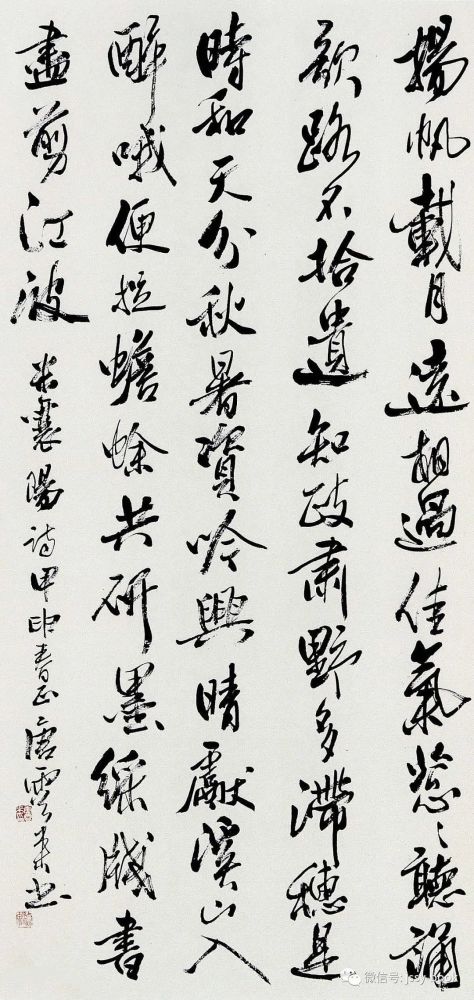 揚帆載月遠相過佳氣蔥〻聽誦
歌路不拾遺知政肅野多滯穗是
時和天分秋暑資吟興晴獻溪山入
醉哦便捉蟾蜍共研墨綵牋書
盡剪江波 米襄陽詩甲申春正唐雲來書
微信号: jssy-book